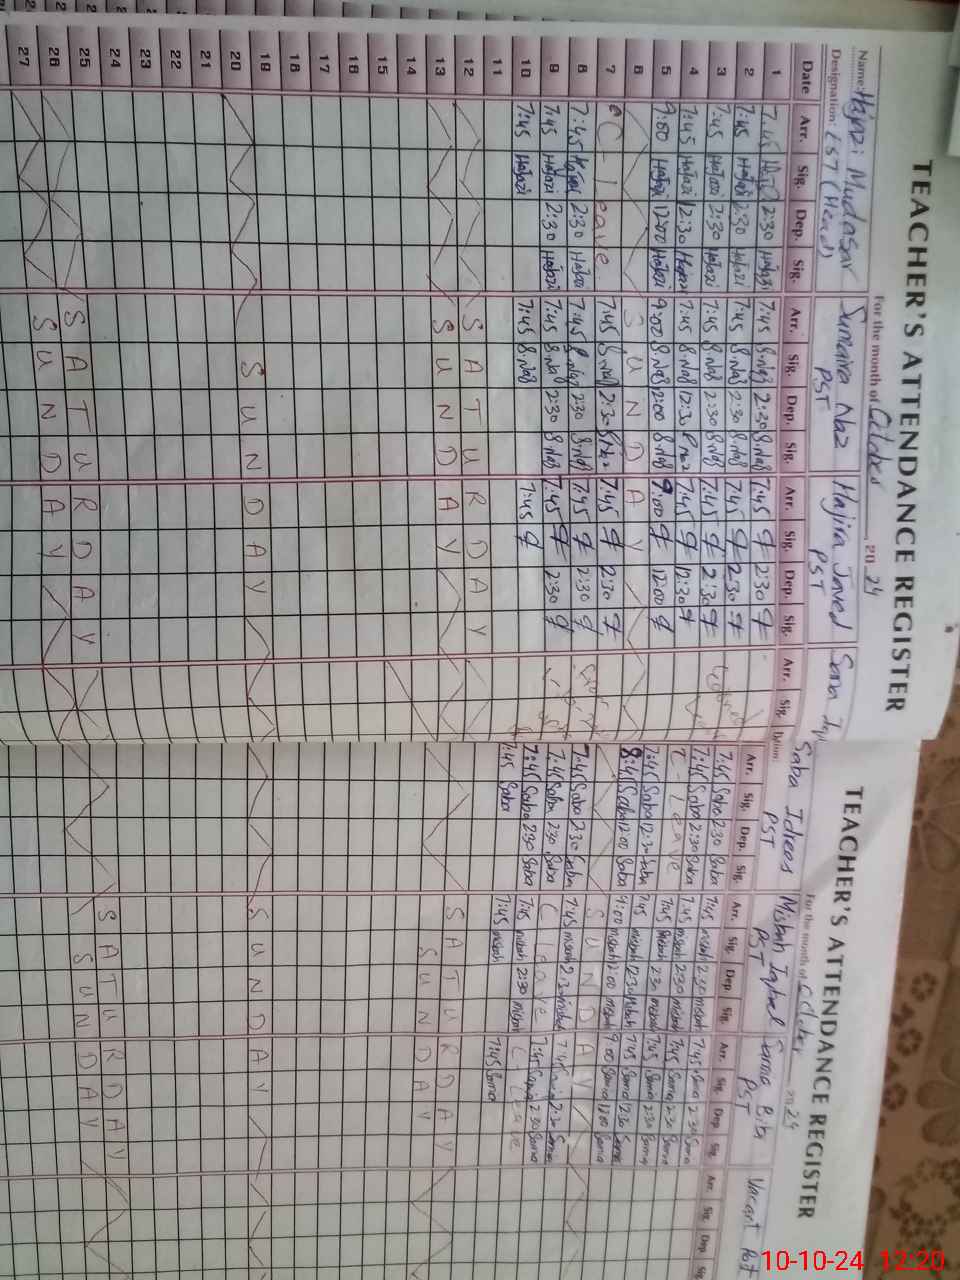 TEACHER'S ATTENDANCE REGISTER
For the month of October 2024
Name: Hajazi Mudasar Sumaira Naz Hajira Javed
Designation: EST (Head) PST PST
Date Arr. Sig. Dep. Sig. Arr. Sig. Dep. Sig. Arr. Sig. Dep. Sig. Arr. Sig.
1 7:45 2:30 Hajazi 7:45 S.Naz 2:30 S.Naz 7:45 2:30
2 7:45 Hajazi 2:30 Hajazi 7:45 S.Naz 2:30 S.Naz 7:45 2:30
3 7:45 Hajazi 2:30 Hajazi 7:45 S.Naz 2:30 S.Naz 7:45 2:30
4 7:45 Hajazi 12:30 Hajazi 7:45 S.Naz 12:30 7:45 12:30
5 9:00 Hajazi 12:00 Hajazi 9:00 S.Naz 12:00 S.Naz 9:00 12:00
6 S U N D A Y
7 C-Leave 7:45 2:30 7:45 2:30
8 7:45 2:30 Hajazi 7:45 S.Naz 2:30 S.Naz 7:45 2:30
9 7:45 Hajazi 2:30 Hajazi 7:45 S.Naz 2:30 S.Naz 7:45 2:30
10 7:45 Hajazi 7:45 S.Naz 7:45
11
12 S A T U R D A Y
13 S U N D A Y
14
15
16
17
18
19
20 S U N D A Y
21
22
23
24
25 S A T U R D A Y
26 S U N D A Y
27
TEACHER'S ATTENDANCE REGISTER
For the month of October 2024
Saba Idrees Misbah Iqbal Saima Bibi Vacant Post
PST PST PST
Arr. Sig. Dep. Sig. Arr. Sig. Dep. Sig. Arr. Sig. Dep. Sig. Arr. Sig. Dep. Sig.
7:45 Saba 2:30 Saba 7:45 misbah 2:30 misbah 7:45 Saima 2:30 Saima
C-Leave 7:45 misbah 2:30 misbah 7:45 Saima 2:30 Saima
7:45 Saba 2:30 Saba 7:45 misbah 2:30 misbah 7:45 Saima 2:30 Saima
7:45 Saba 12:30 Saba 7:45 misbah 12:30 misbah 7:45 Saima 12:30 Saima
8:45 Saba 12:00 Saba 9:00 misbah 12:00 misbah 9:00 Saima 12:00 Saima
S U N D A Y
7:45 Saba 2:30 Saba 7:45 misbah 2:30 misbah 7:45 Saima 2:30 Saima
7:45 Saba 2:30 Saba C-Leave 7:45 Saima 2:30 Saima
7:45 Saba 2:30 Saba 7:45 misbah 2:30 misbah C-Leave
7:45 Saba 7:45 misbah 7:45 Saima
S A T U R D A Y
S U N D A Y
S U N D A Y
S A T U R D A Y
S U N D A Y
10-10-24 12:20